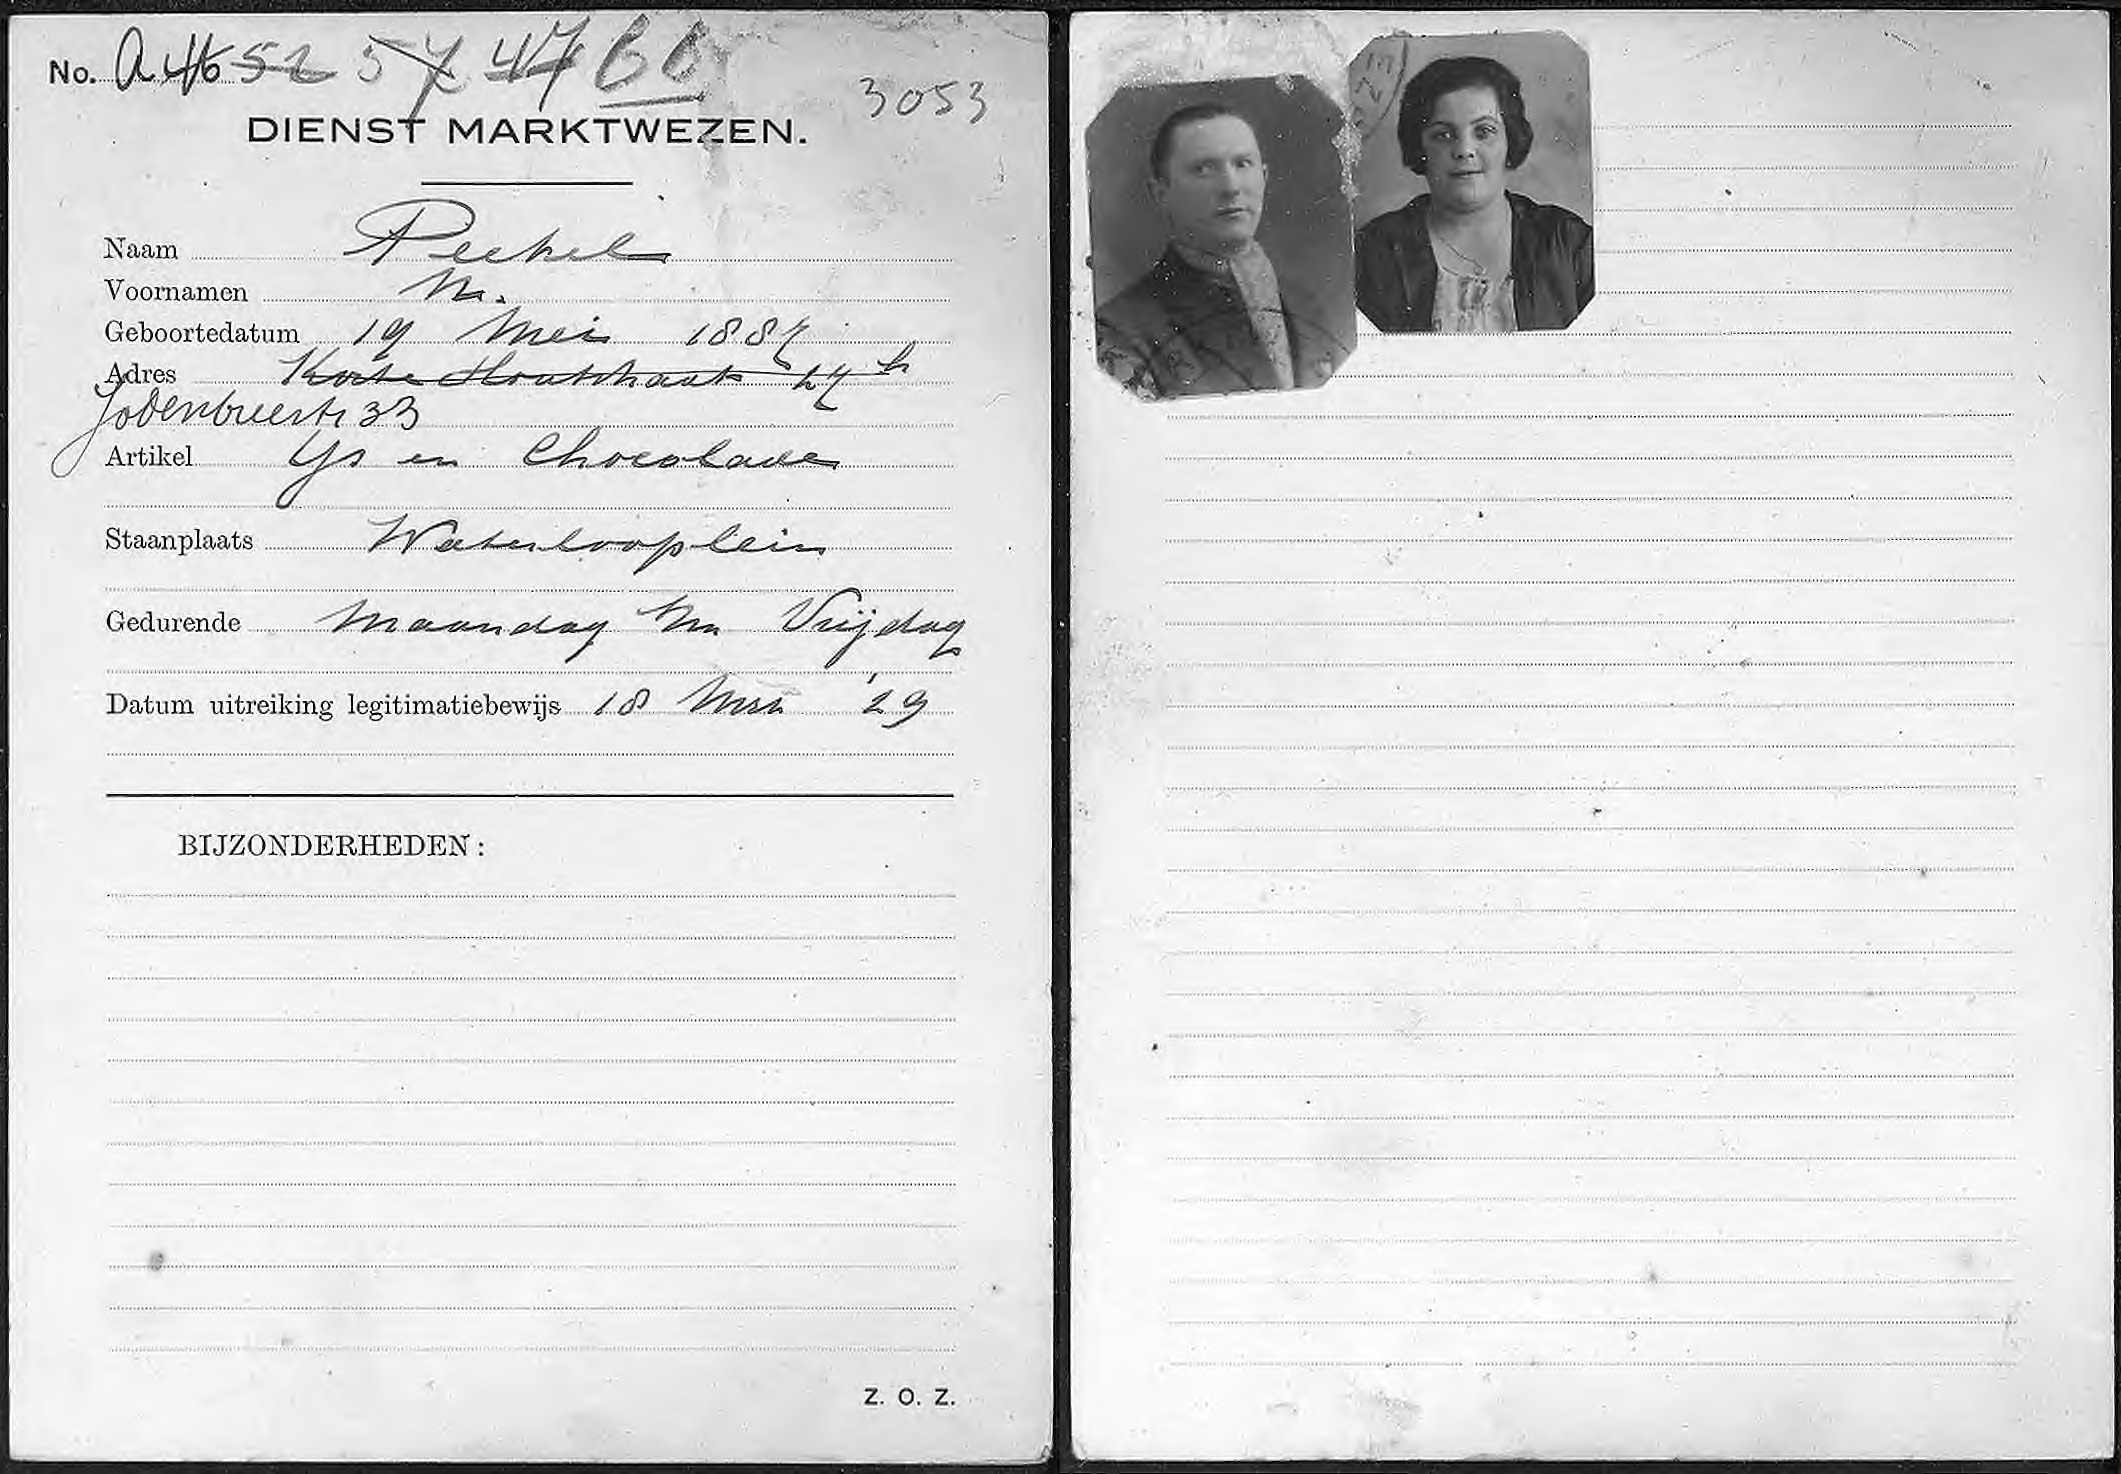 No. A 46 52 57 47 66
3053
DIENST MARKTWEZEN.
Naam Peekel
Voornamen M.
Geboortedatum 19 Mei 1887
Adres Korte Houtstraat 27 h
Jodenbreestr 33
Artikel IJs en Chocolade
Staanplaats Waterlooplein
Gedurende Maandag t/m Vrijdag
Datum uitreiking legitimatiebewijs 18 Mei '29
BIJZONDERHEDEN:
Z. O. Z.